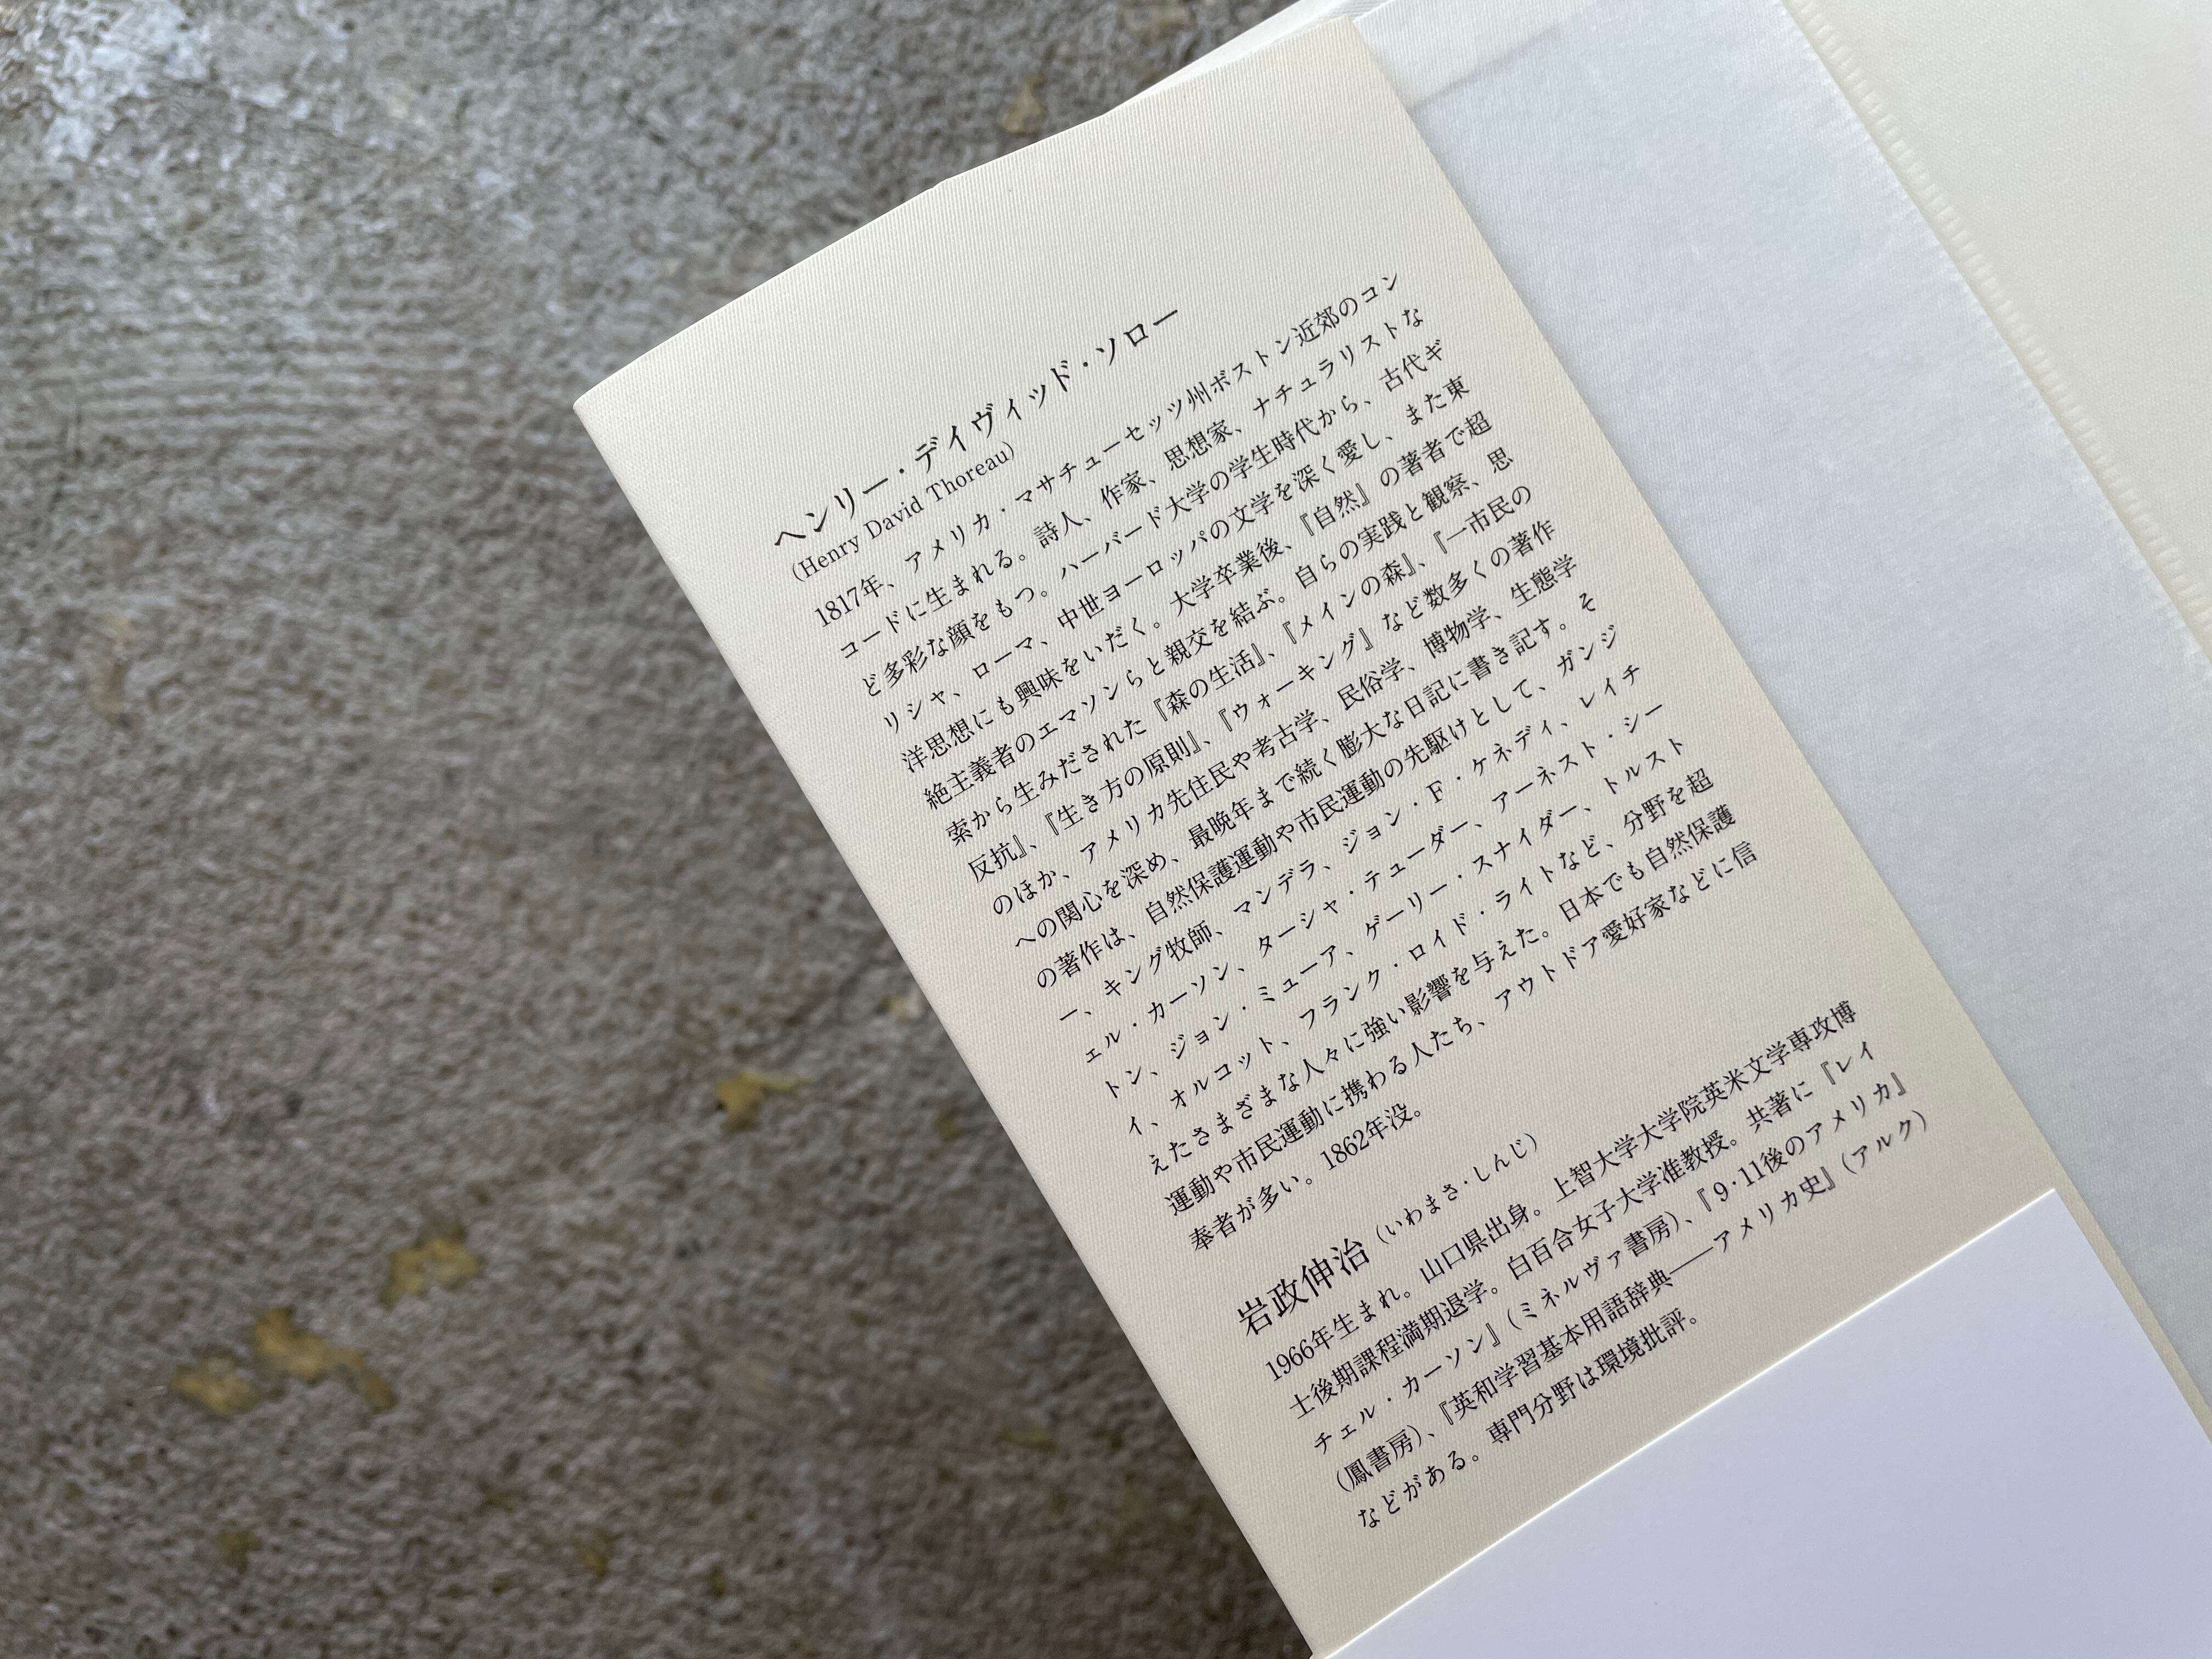 ヘンリー・デイヴィッド・ソロー
(Henry David Thoreau)
1817年、アメリカ・マサチューセッツ州ボストン近郊のコン
コードに生まれる。詩人、作家、思想家、ナチュラリストな
ど多彩な顔をもつ。ハーバード大学の学生時代から、古代ギ
リシャ、ローマ、中世ヨーロッパの文学を深く愛し、また東
洋思想にも興味をいだく。大学卒業後、『自然』の著者で超
絶主義者のエマソンらと親交を結ぶ。自らの実践と観察、思
索から生みだされた『森の生活』、『メインの森』、『一市民の
反抗』、『生き方の原則』、『ウォーキング』など数多くの著作
のほか、アメリカ先住民や考古学、民俗学、博物学、生態学
への関心を深め、最晩年まで続く膨大な日記に書き記す。そ
の著作は、自然保護運動や市民運動の先駆けとして、ガンジ
ー、キング牧師、マンデラ、ジョン・F・ケネディ、レイチ
ェル・カーソン、ターシャ・テューダー、アーネスト・シー
トン、ジョン・ミューア、ゲーリー・スナイダー、トルスト
イ、オルコット、フランク・ロイド・ライトなど、分野を超
えたさまざまな人々に強い影響を与えた。日本でも自然保護
運動や市民運動に携わる人たち、アウトドア愛好家などに信
奉者が多い。1862年没。
岩政伸治（いわまさ・しんじ）
1966年生まれ。山口県出身。上智大学大学院英米文学専攻博
士後期課程満期退学。白百合女子大学准教授。共著に『レイ
チェル・カーソン』（ミネルヴァ書房）、『9・11後のアメリカ』
（鳳書房）、『英和学習基本用語辞典――アメリカ史』（アルク）
などがある。専門分野は環境批評。